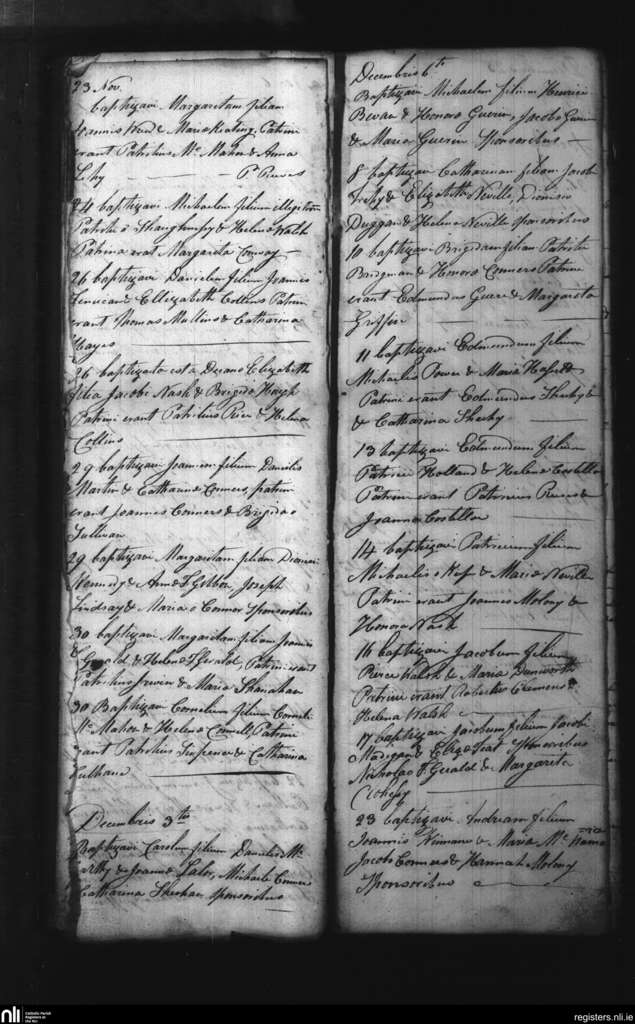 23 Nov.
baptizavi Margaretam filiam
Joannis & Maria Keating, Patrini
erant Patritius Mc Mahon & Anna
Lehy P. Rieves
24 baptizavi Michaelem filium illegitim
Patritii o Shaughnessy & Helena Walsh
Patrina erat Margarita Conway
26 baptizavi Danielem filium Joannis
Finucane & Ellizabeth Collins Patrini
erant Thomas Mullins & Catharina
Hayes
26 baptizata est a Decano Elizabeth
filia Jacobi Nash & Brigida Hough
Patrini erant Patritius Rier & Helena
Collins
29 baptizavi Joannem filium Danielis
Martin & Catharina Conners, patrini
erant Joannes Conners & Brigida o
Sullivan
29 baptizavi Margaritam filiam
Kennedy & Anna F.Gibbon Joseph
Lindsay & Maria o Connor Sponsoribus
30 baptizavi Margaritam filiam Joannis
Gerald & Helena F.Gerald, Patrini erant
Patritius Irwin & Maria Shanahan
30 Baptizavi Cornelium filium Cornelii
Mc Mahon & Helena Connell, Patrini
erant Patritius & Catharina
Culhane
Decembris 3tio
Baptizavi Carolum filium Danielis Mc
arthy & Joanna Lalor, Michaele Conners
Catharina Sheehan sponsoribus
Decembris 6to
Baptizavi Michaelem filium Henrici
Bevan & Honora Guerin, Jacobo Guerin
& Maria Guerin Sponsoribus
8 baptizavi Catharinam filiam Jacobi
& Elizabeth Neville, Dionisio
Duggan & Helena Neville sponsoribus
10 baptizavi Brigidam filiam Patritii
Bridgman & Honora Conners Patrini
erant Edmundus Guere & Margarita
Griffin
11 baptizavi Edmundum filium
Michaelis Power & Maria
Patrini erant Edmundus Sheehy
& Catharina Sheehy
13 baptizavi Edmundum filium
Patricii Holland & Helena Costelloe
Patrini erant Patricius Rieves &
Joanna Costelloe
14 baptizavi Patricium filium
Michaelis o Kef & Maria Neville
Patrini erant Joannes Molony &
Honora Nash
16 baptizavi Jacobum filium
Pierce Walsh & Maria Danworth
Patrini erant Patritius Clemens &
Helena Walsh
17 baptizavi Jacobum filium Jacobi
Madigan & Eliza Sponsoribus
Nicholao F.Gerald & Margarita
Clohessy
23 baptizavi Andream filium
Joannis & Maria Mc
Jacobo Conners & Hannah Molony
Sponsoribus
nli
Catholic Parish
Registers at
the NLI
registers.nli.ie